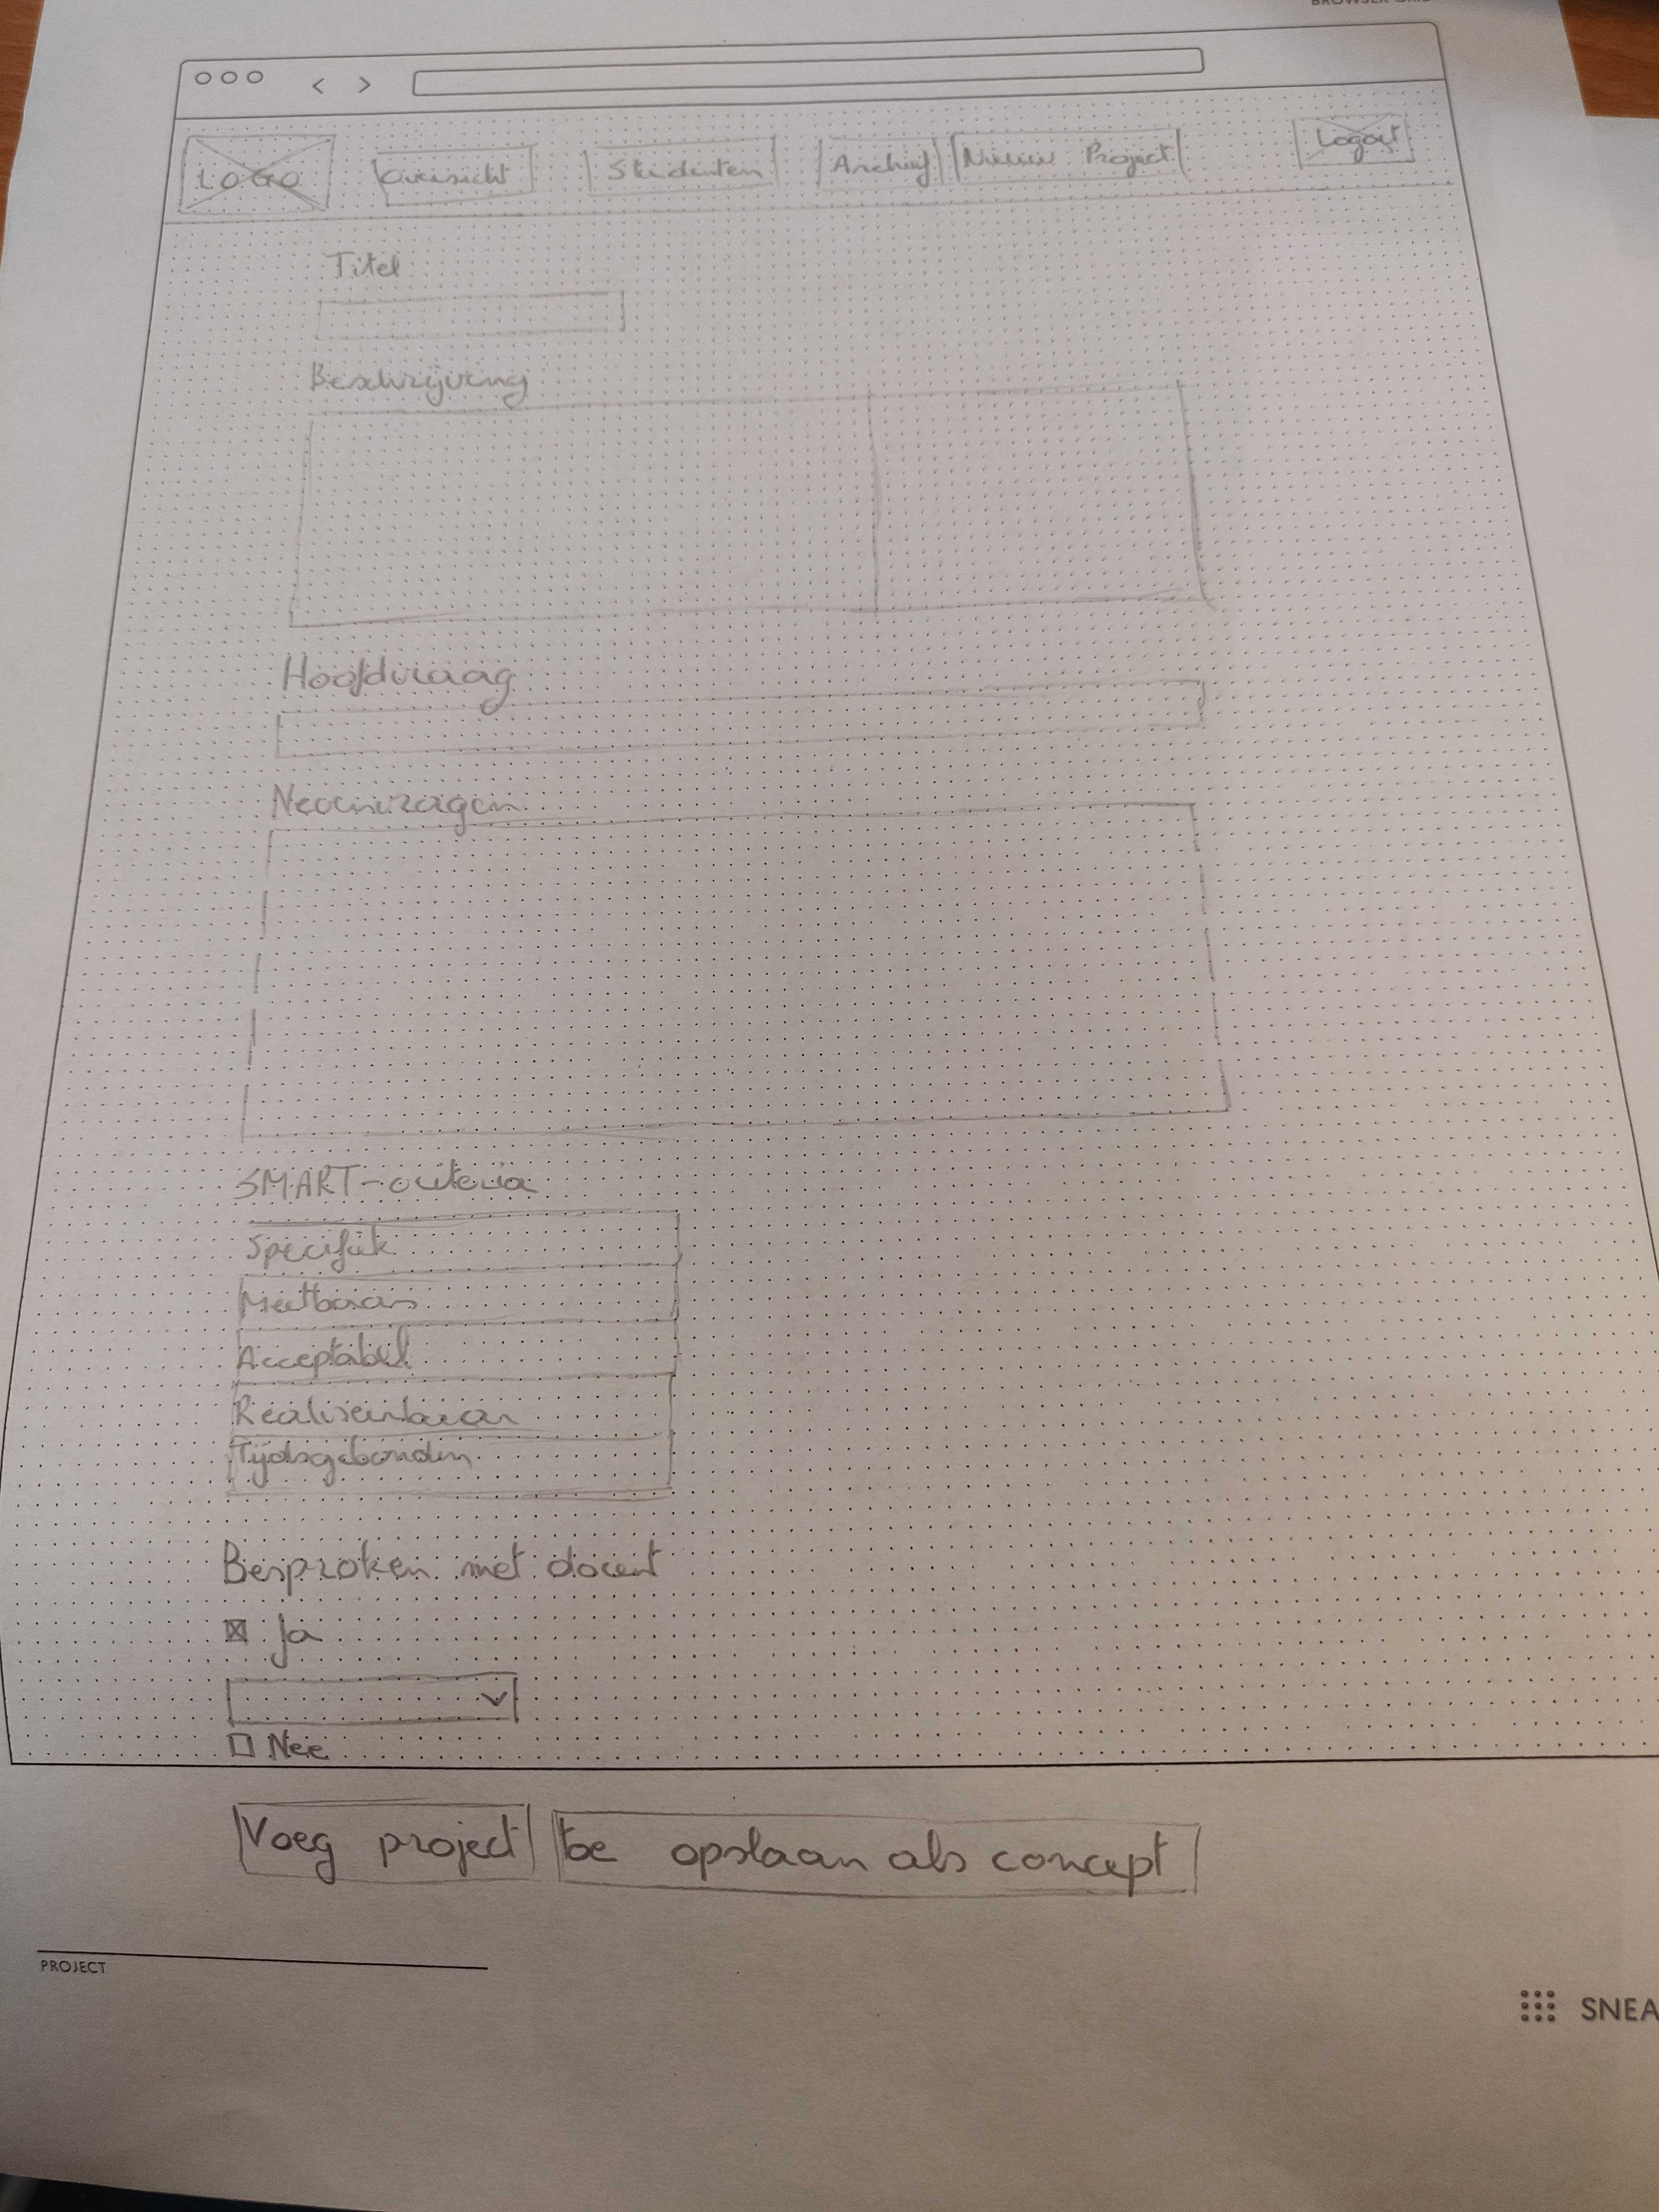 BROWSER GRID
LOGO Overzicht Studenten Archief Nieuw Project Logout
Titel
Beschrijving
Hoofdvraag
Nevenvragen
SMART-criteria
Specifiek
Meetbaar
Acceptabel
Realiseerbaar
Tijdsgebonden
Besproken met docent
Ja
Nee
Voeg project toe opslaan als concept
PROJECT
SNEA